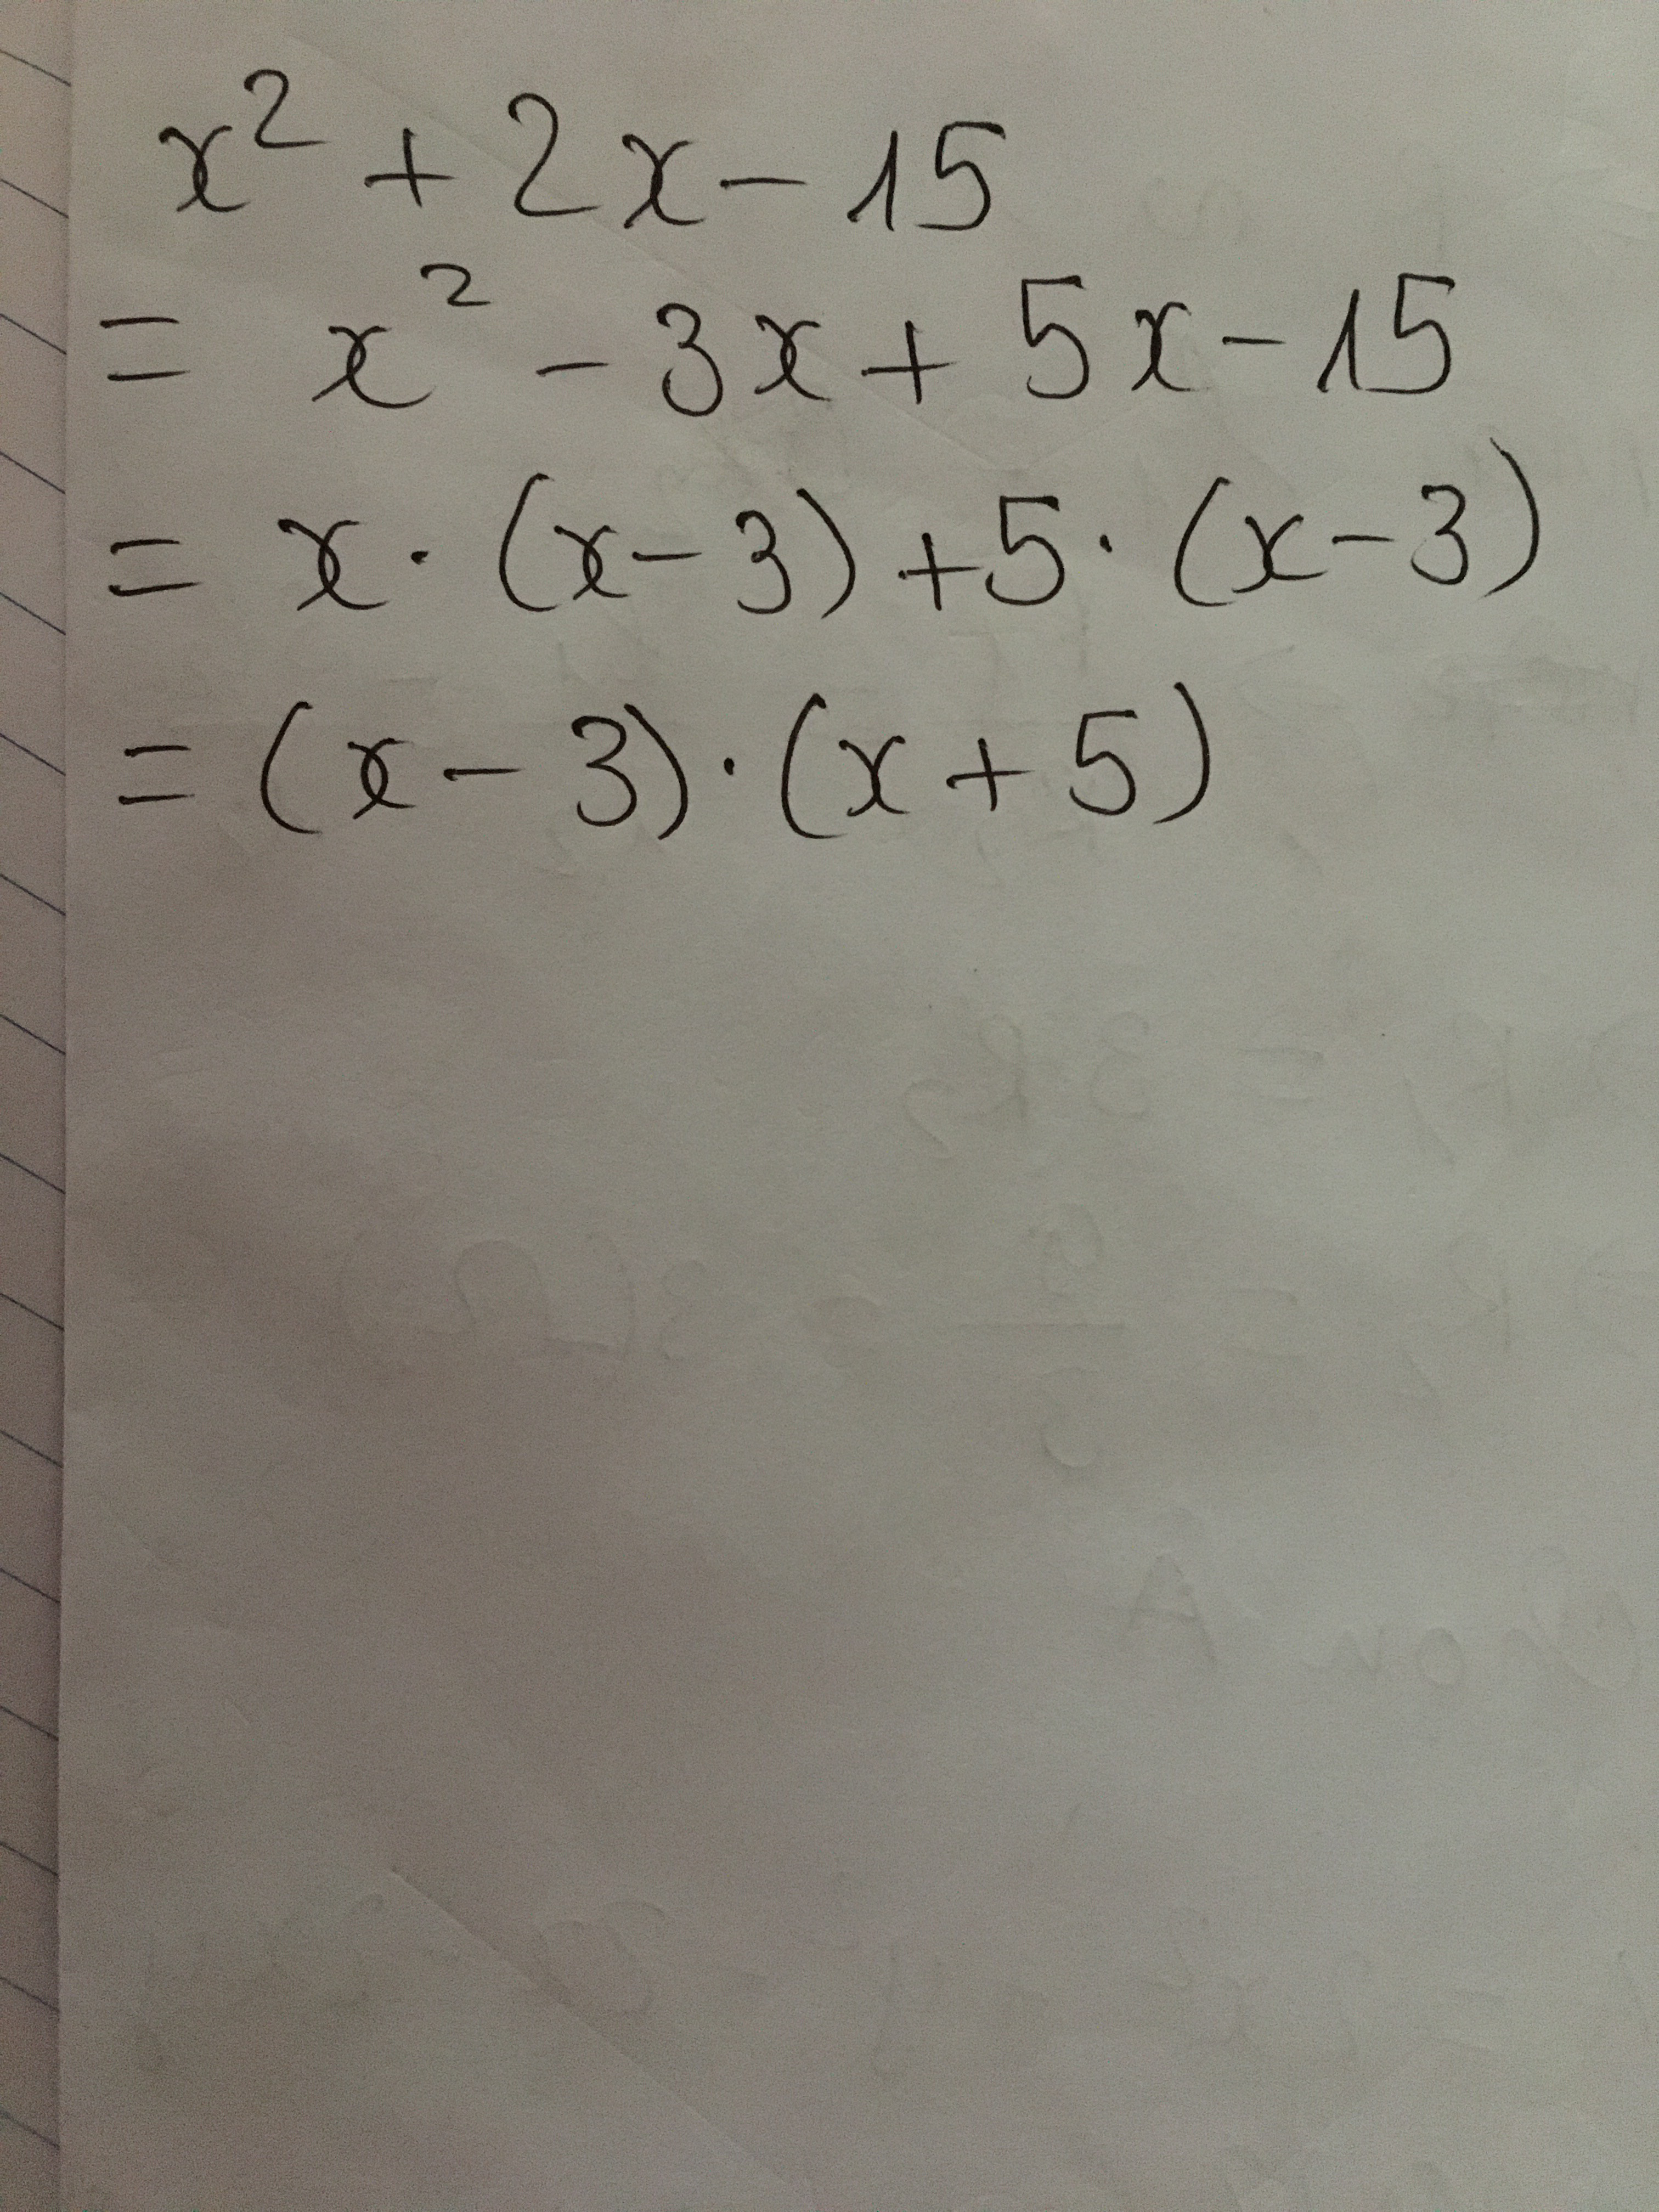 x² + 2x - 15
= x² - 3x + 5x - 15
= x · (x - 3) + 5 · (x - 3)
= (x - 3) · (x + 5)